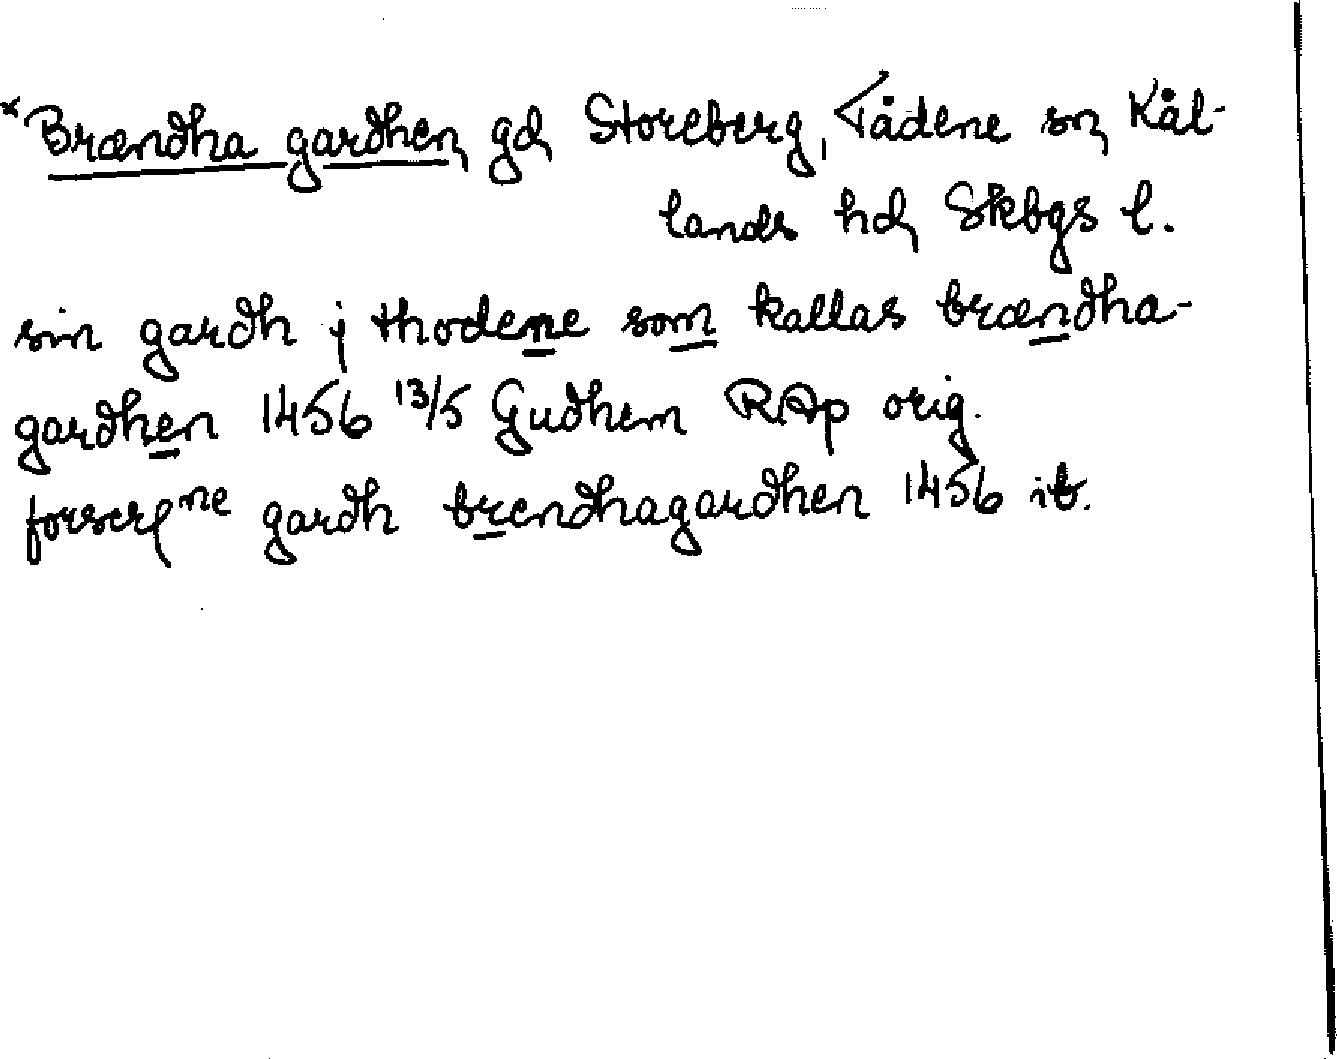 *Brændha gardhen, gd, Storeberg, Tådene sn, Kål-
lands hd, Skbgs l.
sin gardh j thodene som kallas brændha-
gardhen 1456 13/5 Gudhem RAp orig.
forscrne gardh brendhagardhen 1456 ib.